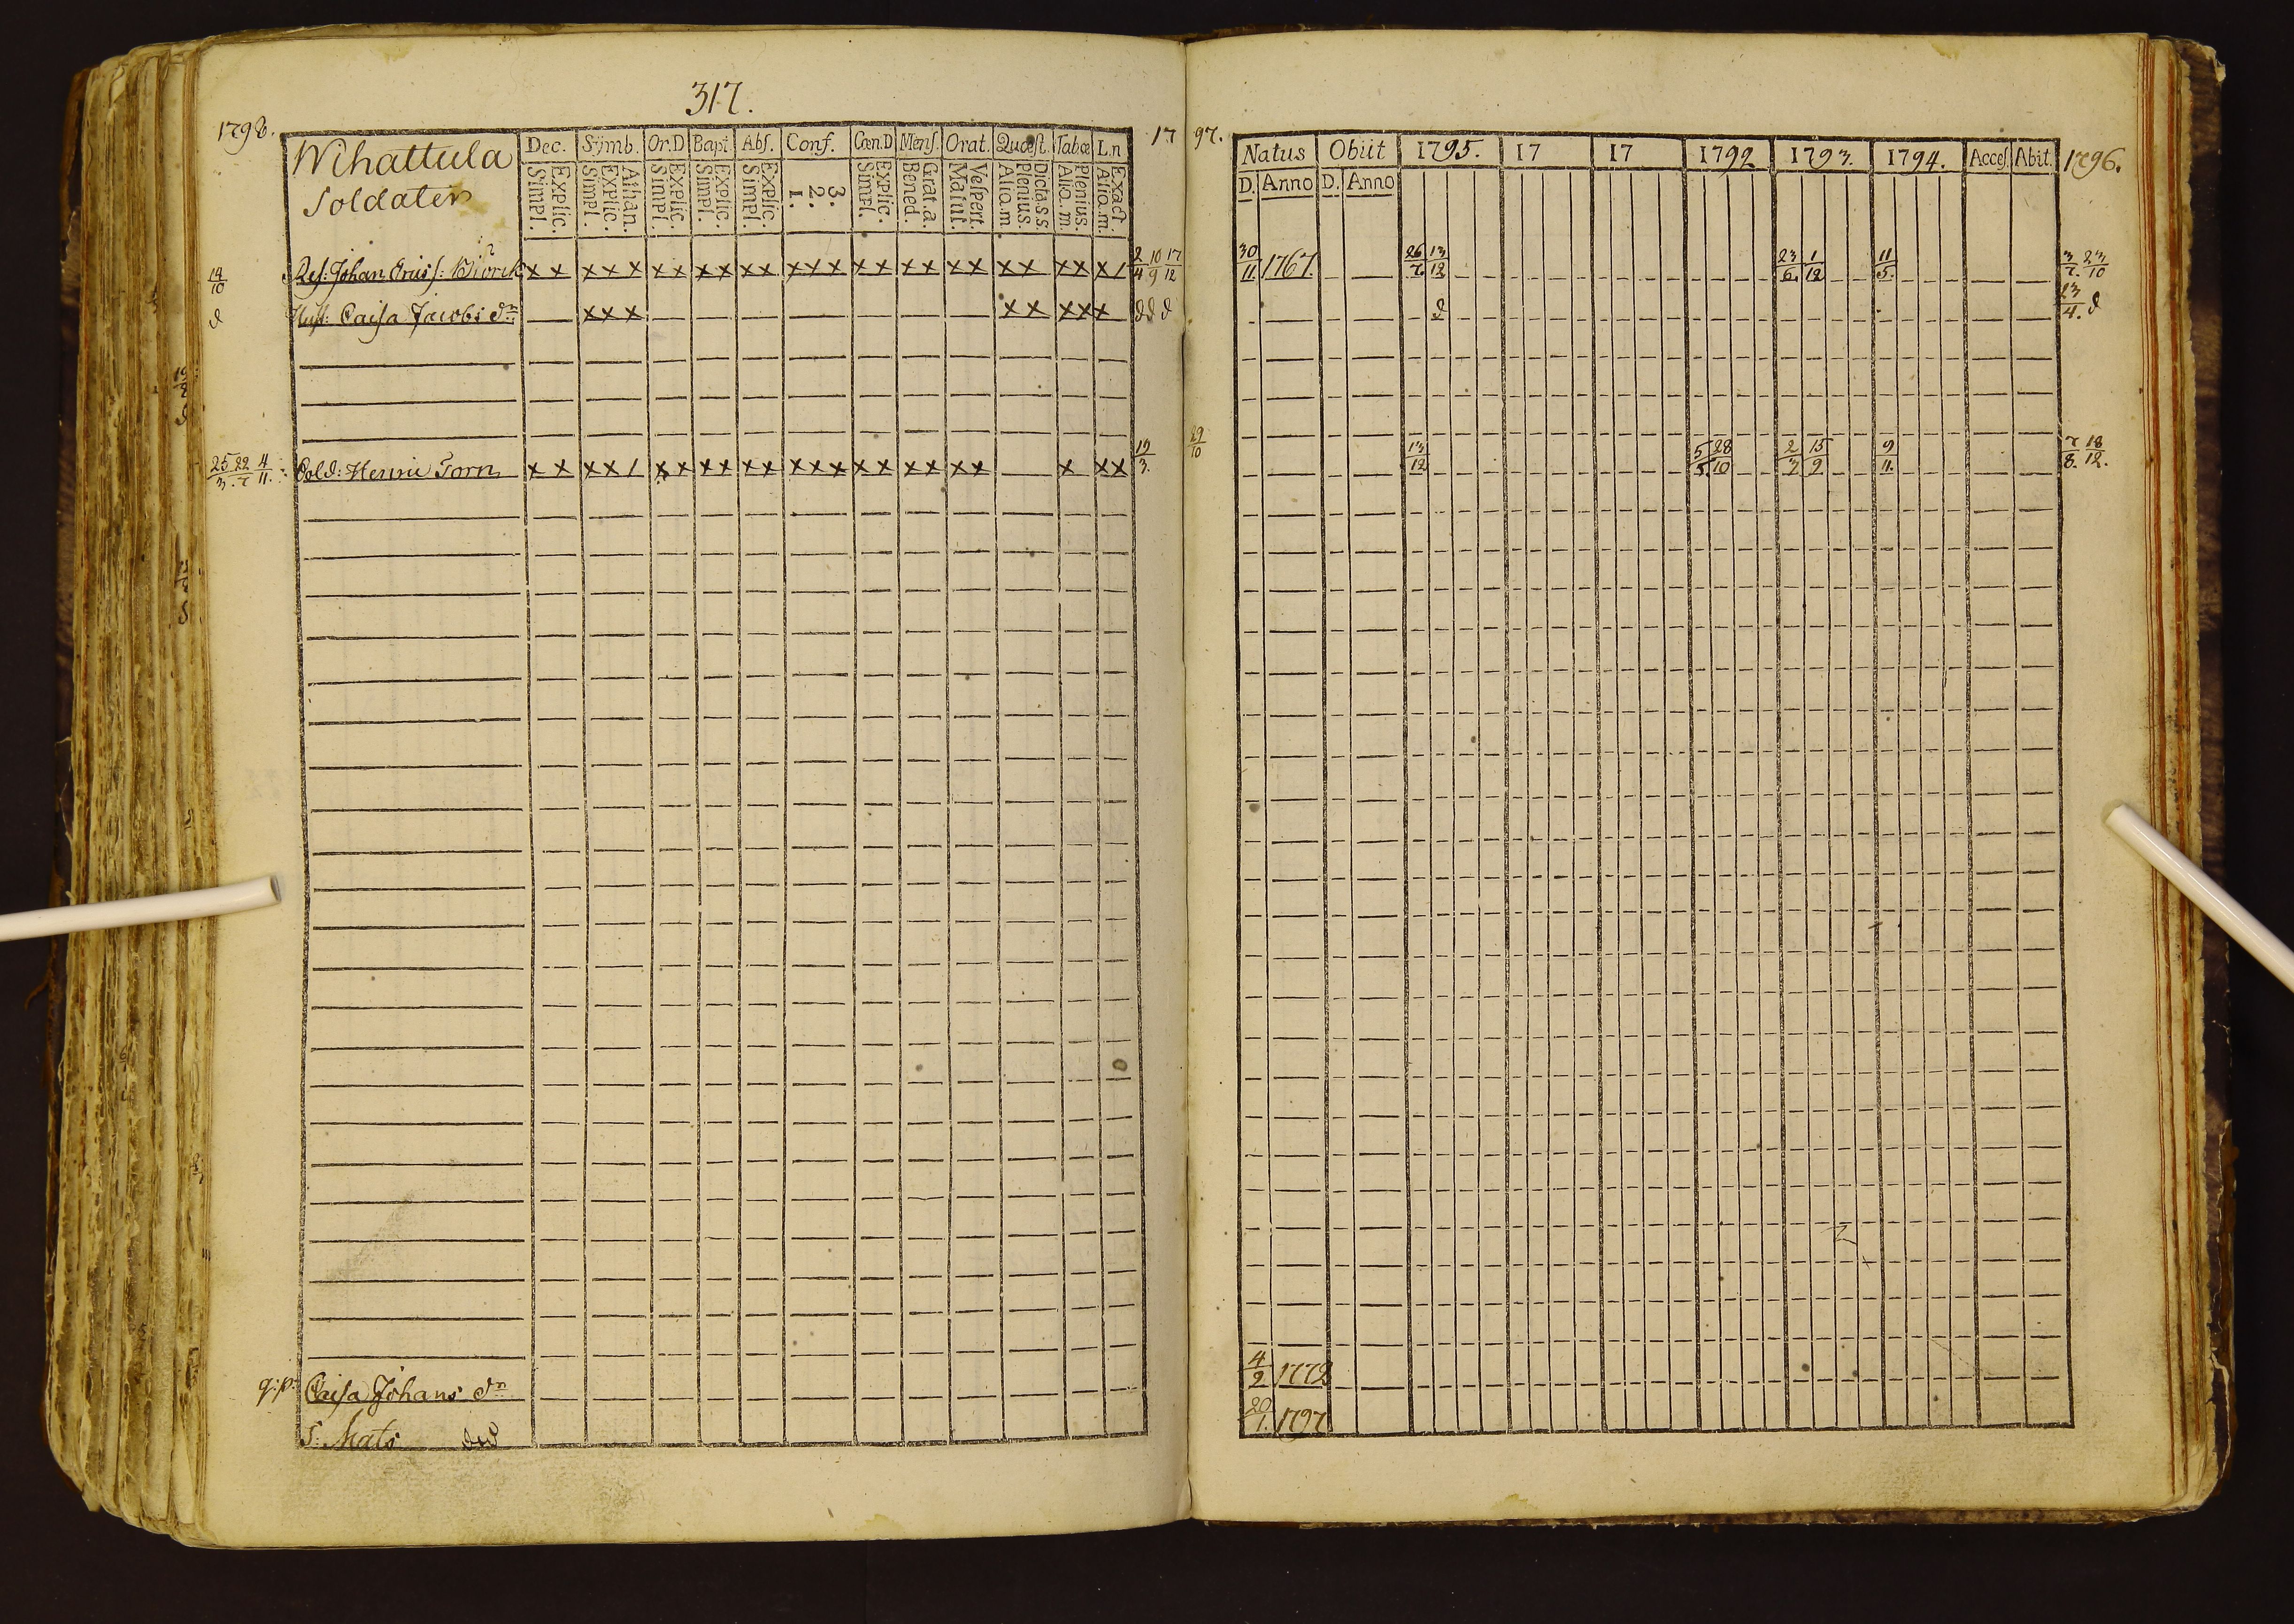 317.
1798.
Wihattula
Soldater
Dec. Symb. Or.D Bapt. Abs. Conf. Cœn.D Mens. Orat. Quæst. Tabœ L.n
Simpl. Explic. Simpl. Explic. Athan. Simpl. Explic. Simpl. Explic. Simpl. Explic. 1. 2. 3. Simpl. Explic. Bened. Grat.a. Matut. Vespert. Alio.m Plenius. Dicta.s.s. Alio.m. Plenius. Alio.m. Exact.
17 97.
Natus Obiit 1795. 17 17 1792 1793. 1794. Acces. Abit. 1796.
D. Anno D. Anno
14/10 Res: Johan Erics s: Biörck x x x x x x x x x x x x x x x x x x x x x x x x x x / 2/4 10/9 17/12 30/11 1767 26/7. 13/12 23/6. 1/12 11/5. 3/7. 23/10
d Hust: Caisa Jacobs dr x x x x x x x x d d d d 23/4. d
25/3. 22/7 4/11. Sold: Henric Torn x x x x / x x x x x x x x x x x x x x x x x x 19/3. 29/10 13/12 5/5 28/10 2/3 15/9 9/11. 7/8. 18/12.
q:p: Caisa Johans dr 4/2 1772
S: Mats 20/1. 1797